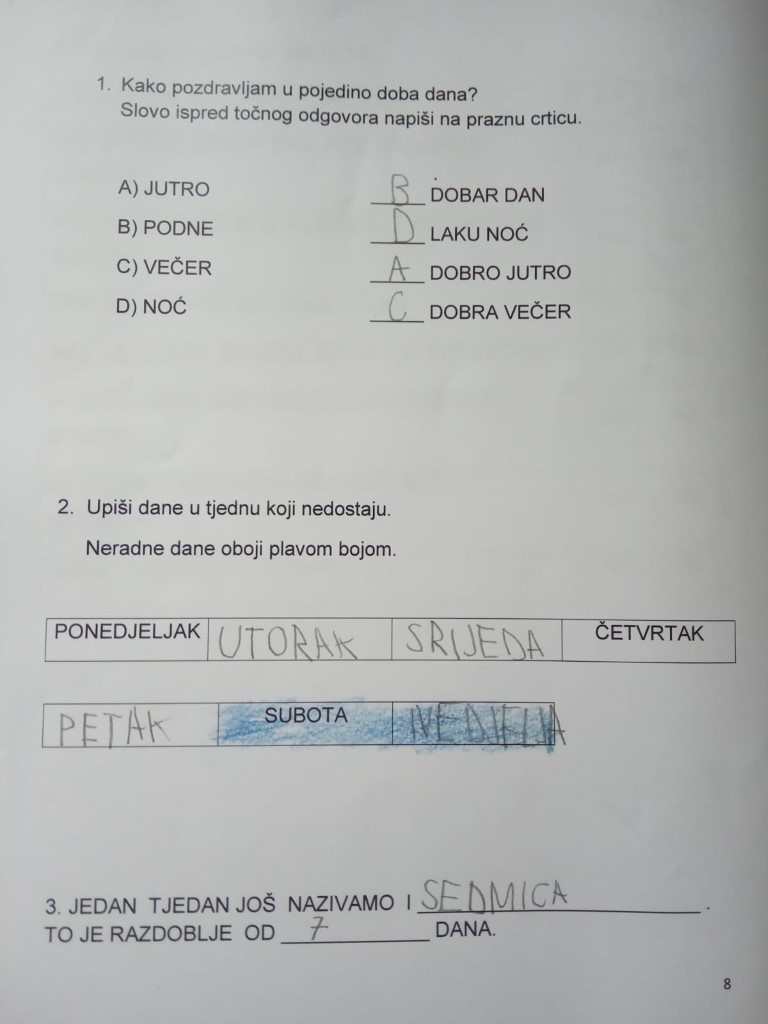 1. Kako pozdravljam u pojedino doba dana?
Slovo ispred točnog odgovora napiši na praznu crticu.
A) JUTRO B DOBAR DAN
B) PODNE D LAKU NOĆ
C) VEČER A DOBRO JUTRO
D) NOĆ C DOBRA VEČER
2. Upiši dane u tjednu koji nedostaju.
Neradne dane oboji plavom bojom.
PONEDJELJAK UTORAK SRIJEDA ČETVRTAK
PETAK SUBOTA NEDJELJA
3. JEDAN TJEDAN JOŠ NAZIVAMO I SEDMICA.
TO JE RAZDOBLJE OD 7 DANA.
8